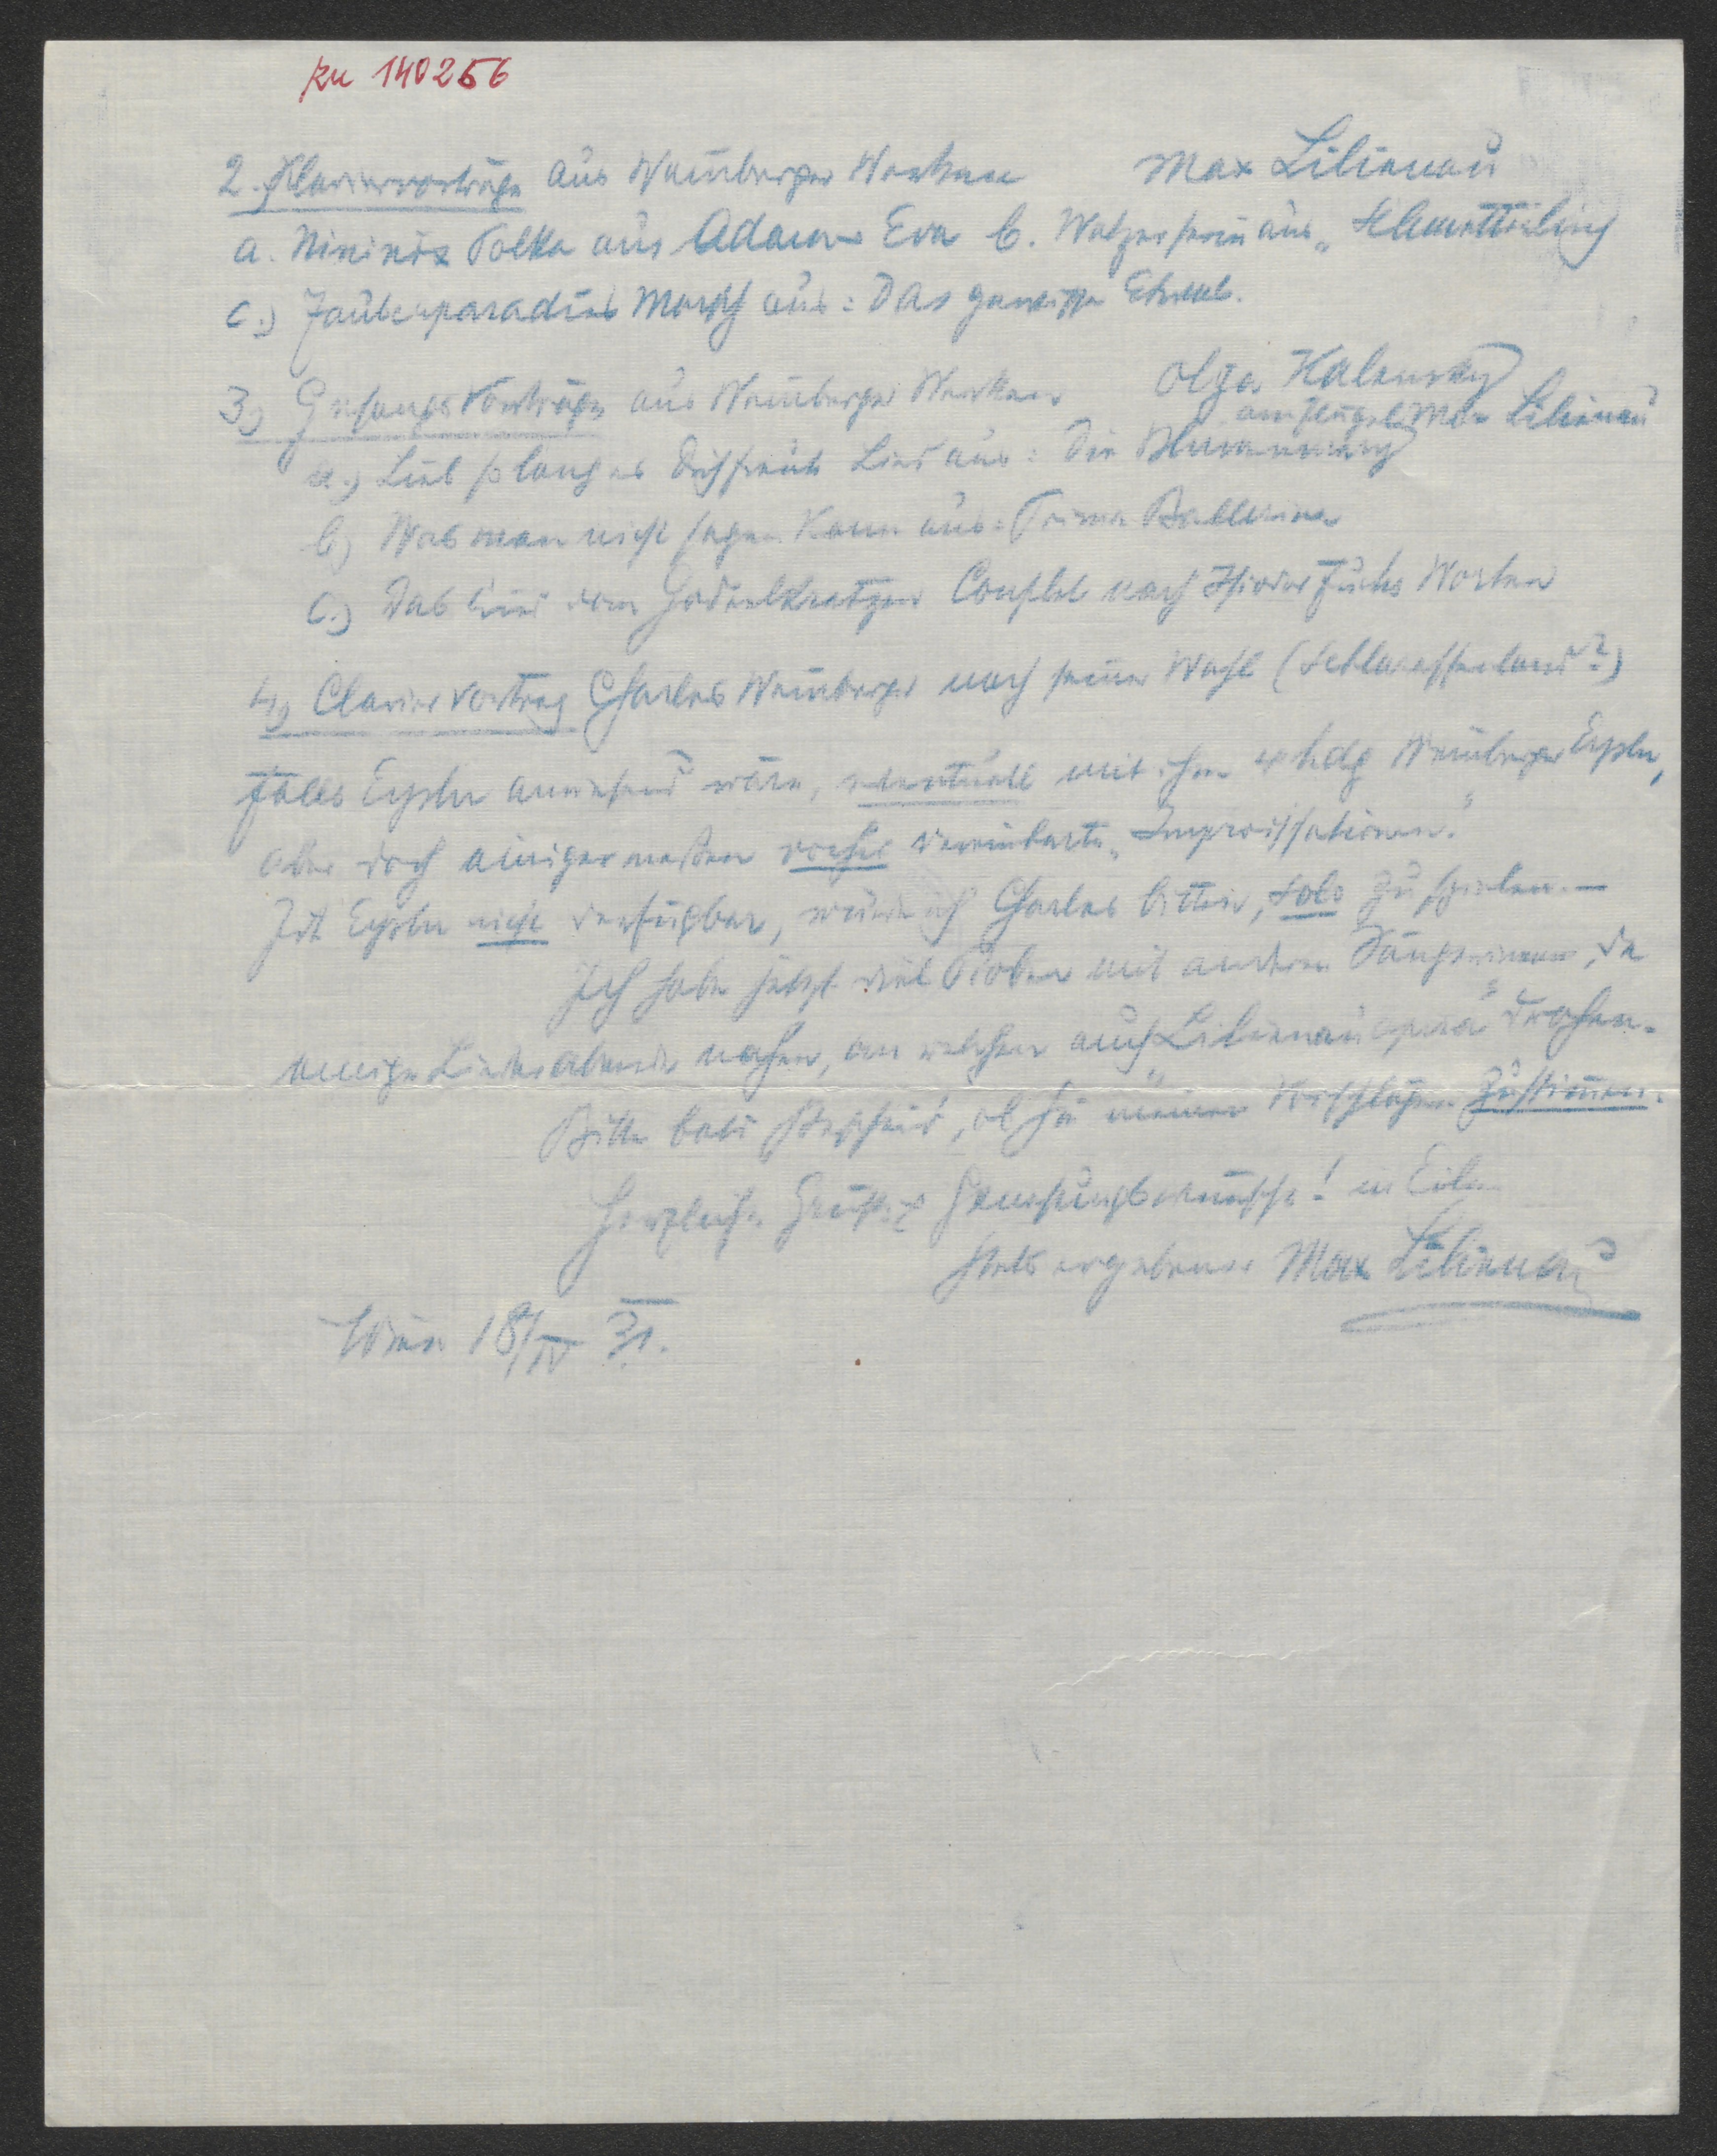 zu 140256
2. Klaviervorträge aus Weinberger Werken Max Lilienau
a. Polka aus Adam & Eva b. Walzer aus „Schmetterling
c.) Zauberparadies Marsch aus: Das gewisse Etwas.
3.) Gesangsvorträge aus Weinberger Werken Olga Kalensky
am Flügel Max Lilienau
a.) Lieb so lang es Dich freut Lied aus: Die Blumen
b) Was man nicht sagen kann aus: Prima Ballerina
c.) Das Lied vom Couplet nach Isidor Fuchs Worten
4.) Claviervortrag Charles Weinberger nach seiner Wahl (Schlaraffenland?)
Falls Eysler anwesend wäre, eventuell mit ihm 4 hdg Weinberger Eysler,
aber doch einigermaßen vorher vereinbarte „Improvisationen."
Ist Eysler nicht verfügbar, würde ich Charles bitten, solo zu spielen. —
Ich habe jetzt viel Proben mit anderen Sängerinnen, da
einige Liederabende nahen, an welchen auch „Lilienau opera" drohen.
Bitte bald Bescheid, ob Sie meinen Vorschlägen zustimmen.
Herzliche Grüße & Genesungswünsche! in Eile
stets ergebener Max Lilienau
Wien 18/IV 31.